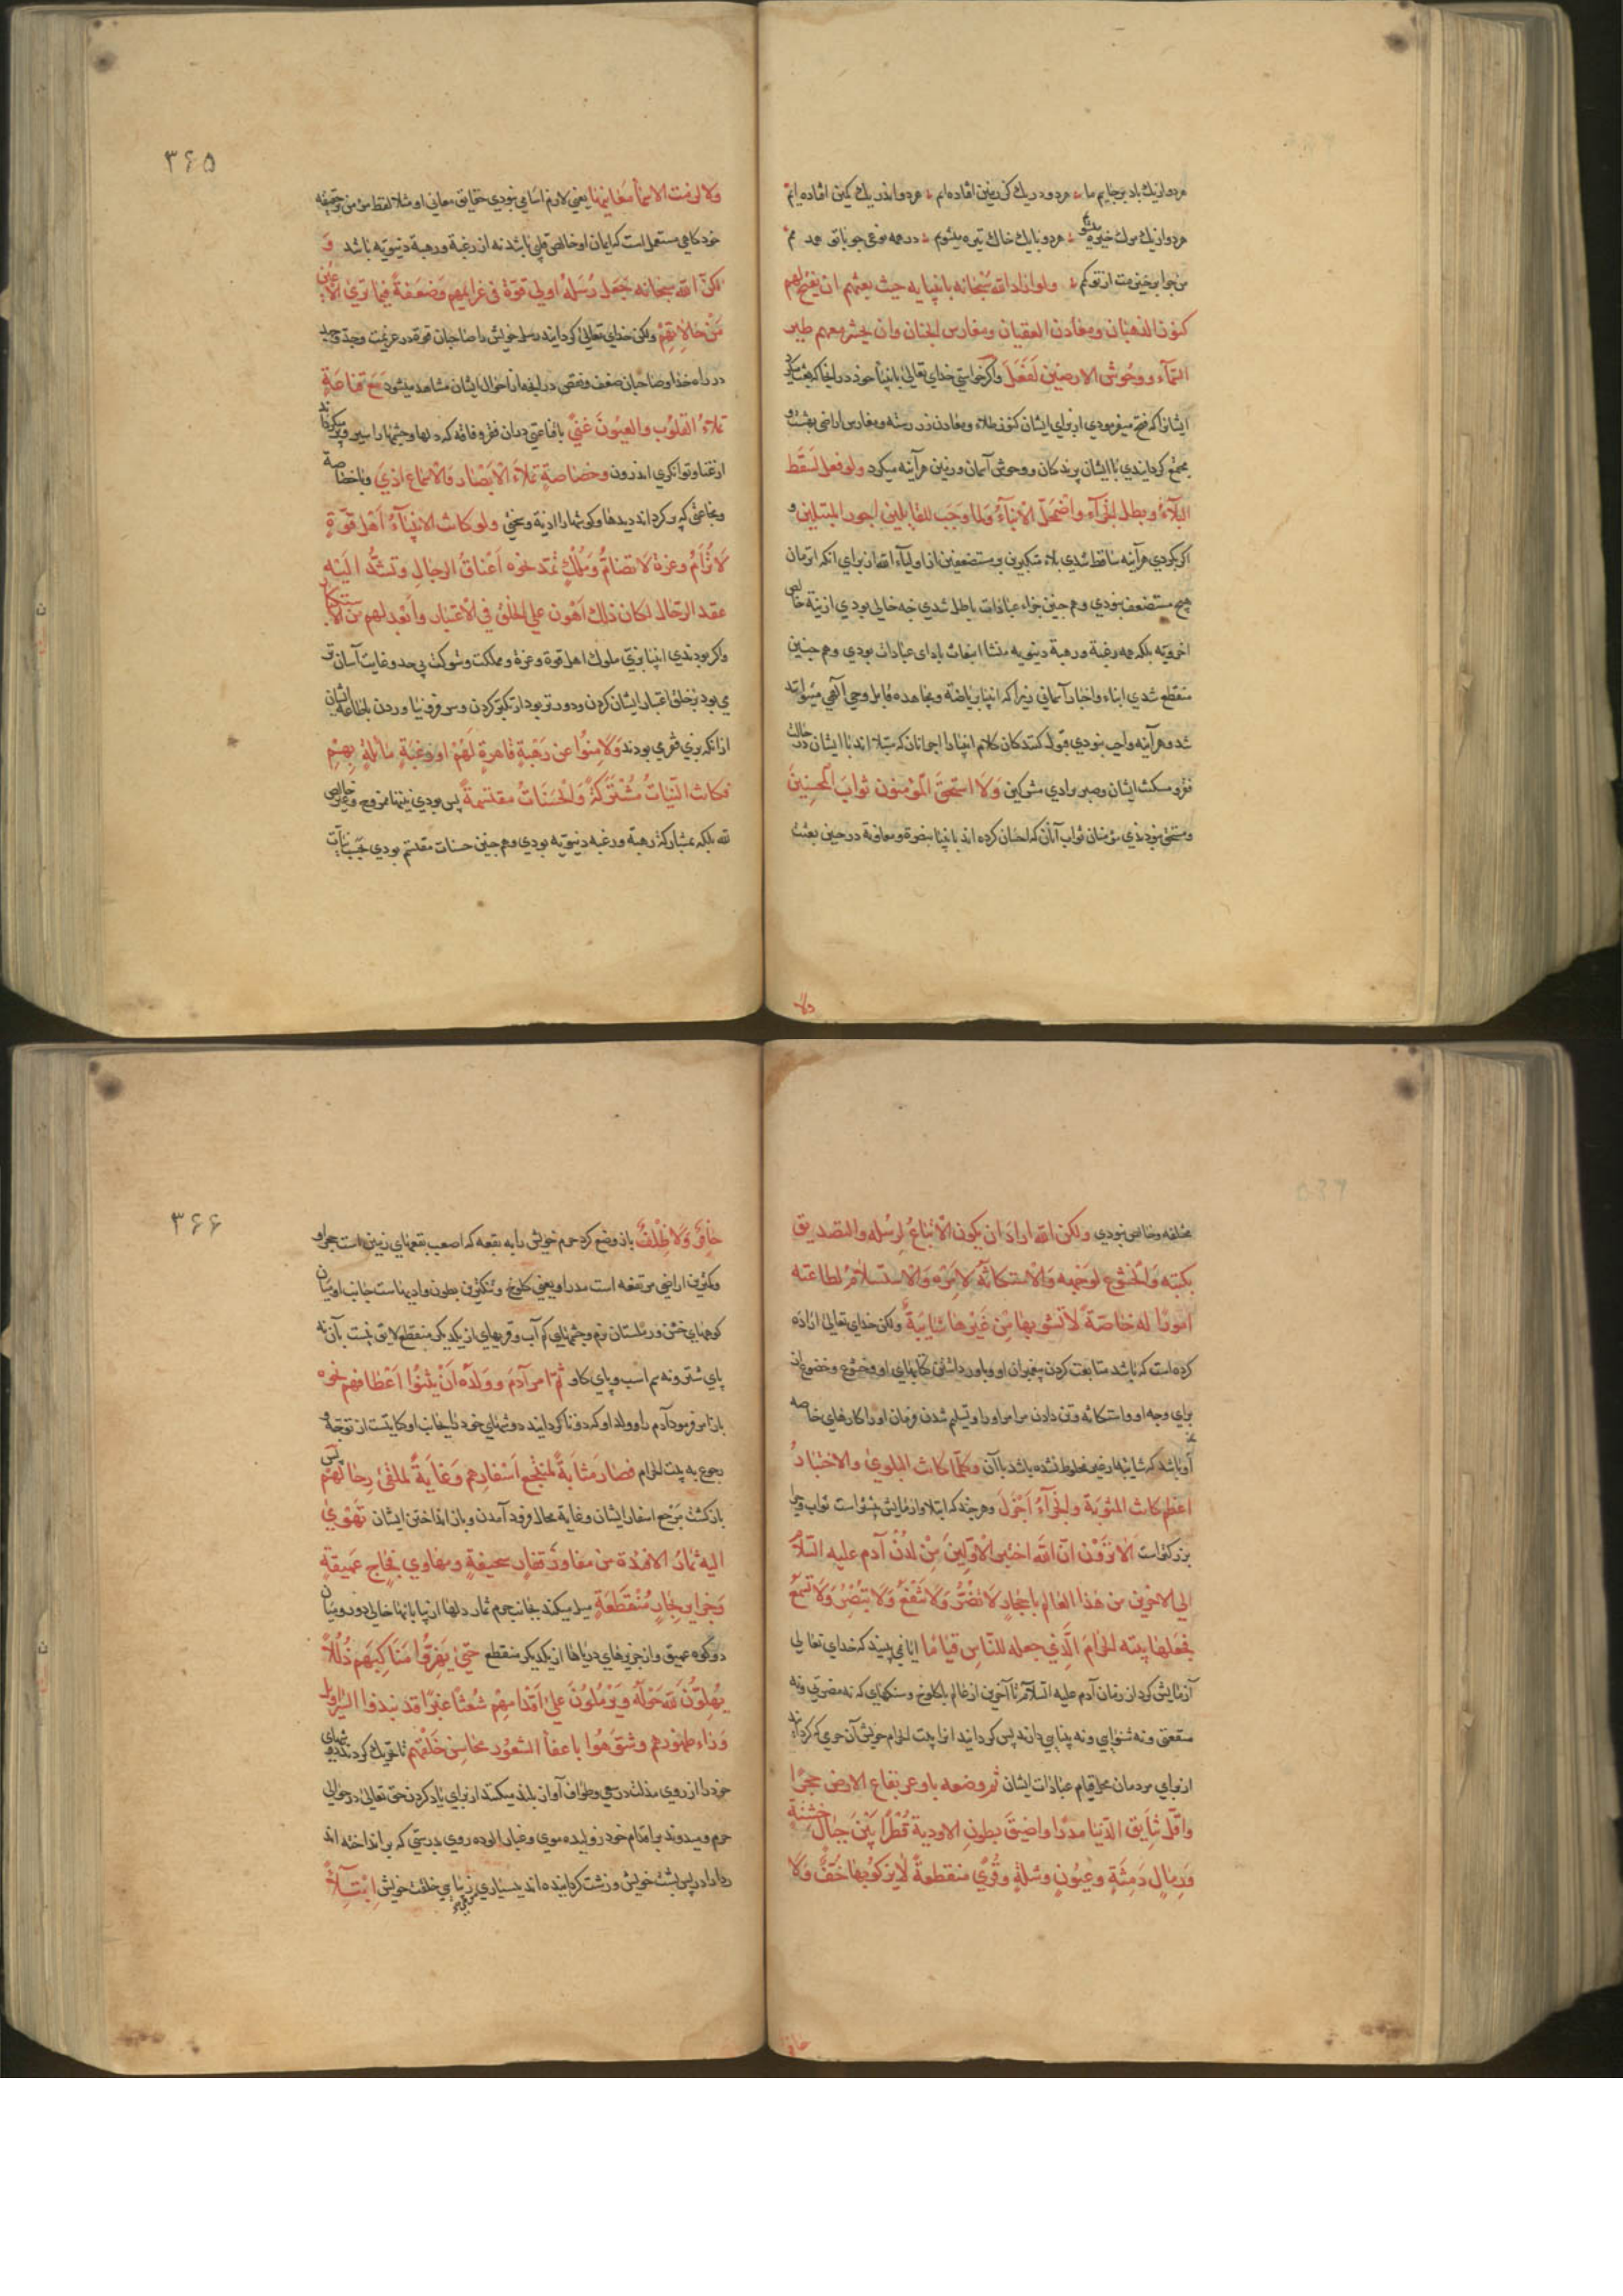 هر دو از یك باد بر جاییم ما هر دو در یك کن زمین افتاده‌ایم هر دو اندر یك کمین افتاده‌ایم
هر دو از یك مرك خیره میشویم هر دو با یك خاك تیره میشویم در همه نوعی چو با تو همدمم
من چرا بر خیزمت از تو کم ولو اراد الله سبحانه بانبیایه حیث بعثهم ان یفتح لهم
کنوز الذهبان ومعادن العقیان ومغارس الجنان وان یحشر معهم طیر
السمآء ووحوش الارضین لفعل واکر خواستی خدای تعالی بانبیآ خود در انجا که بعث کرد
ایشانرا که فتح میفرمودی از برای ایشان کنوز طلاء ومعادن زر رسته ومغارس اراضی بهشت و
مجتمع کردانیدی با ایشان پرندکان ووحوش آسمان وزمین هر آینه میکرد ولو فعل لسقط
البلآء وبطل الجزآء واضمحل الانبآء ولما وجب للقابلین اجور المبتلین و
اکر بکردی هر آینه ساقط شدی بلاء متکبرین ومستضعفین از اولیآء الله از برای انکه انزمان
هیچ مستضعف نبودی وهم چنین جزاء عبادات باطل شدی چه خالی بودی از نیة خالص
اخرویه بلکه همه رغبة ورهبة دنیویه منشا انبعاث بادای عبادات بودی وهم چنین
منقطع شدی ابناء واخبار آسمانی زیرا که انبیا بریاضة ومجاهده قابل وحی الهی میتواند
شد وهر آینه واجب نبودی قبول کنندکان کلام انبیا را اجر آنان که مبتلا اند با ایشان در حالت
فقر ومسکنت ایشان وصبر بر اذی مشرکین ولا استحق المؤمنون ثواب المحسنین
ومستحق نبودندی مؤمنان ثواب آنان که احسان کرده اند بانبیا بنصرة ومعاونة در حین بعثت
ولا
۳۶۵
ولا لزمت الاسمآ معانیها یعنی لازم اسامی نبودی حقایق معانی او مثلا لفظ مؤمن در حقیقه
خود کاهی مستعمل است که ایمان او خالص قلبی باشد نه از رغبة ورهبة دنیویه باشد و
لکن الله سبحانه جعل رسله اولی قوة فی عزایمهم وضعفة فیما تری الاعین
من حالاتهم ولکن خدای تعالی کردانید رسل خویش را صاحبان قوة در عزیمت وجد وجهد
در راه خدا وصاحبان ضعف ونقص در انچه از احوال ایشان مشاهد میشود مع قناعة
تملاء القلوب والعیون غنی با قناعتی در آن فقر وفاقه که دلها وچشمها را سیر وپر میکرداند
از غنا وتوانکری اندرون وخصاصة تملاء الابصار والاسماع اذی وبا خصاصة
ومجاعتی که پر کرداند دیدها وکوشها را اذیة وسختی ولو کانت الانبیآء اهل قوة
لا ترام وعزة لا تضام وملك تمتد نحوه اعناق الرجال وتشد الیه
عقد الرحال لکان ذلك اهون علی الخلق فی الاعتبار وابعد لهم من الاستکبار
واکر بودندی انبیا بزی ملوك اهل قوة وعزة ومملکت وشوکت بی حد وغایت آسان تر
می بود بر خلق اعتبار ایشان کردن ودورتر بود از تکبر کردن وسر فرو نیاوردن باطاعة ایشان
از انکه بزی فقری بودند ولامنوا عن رهبة قاهرة لهم او رغبة مایلة بهم
فکانت النیات مشترکة والحسنات مقتسمة پس بودی نیتها ممزوج وغیر خالص
لله بلکه بمشارکة رهبة ورغبه دنیویه بودی وهم چنین حسنات مقتسم بودی بحسب نیات
مختلفه وخالص نبودی ولکن الله اراد ان یکون الاتباع لرسله والتصدیق
بکتبه والخشوع لوجهه والاستکانة لامره والاستسلام لطاعته
امورا له خاصة لا تشوبها من غیرها شایبة ولکن خدای تعالی اراده
کرده است که باشد متابعت کردن پیغمبران او وباور داشتن کتابهای او وخشوع وخضوع از
برای وجه او واستکانه وتن دادن مر امر او را وتسلیم شدن فرمان او را کارهای خاصه
او باشد که شایبها از غیر مخلوط نشده باشد با آن وکلما کانت البلوی والاختبار
اعظم کانت المثوبة والجزآء اجزل وهر چند که ابتلا وآزمایش بیشتر است ثواب وجزا
بزرکتر است الا ترون ان الله اختبر الاولین من لدن آدم علیه السلام
الی الاخرین من هذا العالم باحجار لا تضر ولا تنفع ولا تبصر ولا تسمع
فجعلها بیته الحرام الذی جعله للناس قیاما ایا نمی بینید که خدای تعالی
آزمایش کرد از زمان آدم علیه السلام تا آخرین از عالم با کلوخ وسنکهای که نه مضرتی ونه
منفعتی ونه شنوایی ونه بینایی دارند پس کردانید انرا بیت الحرام خویش آن حرمی که کرداند
از برای مردمان محل قیام عبادات ایشان ثم وضعه باوعر بقاع الارض حجرا
واقل نتایق الدنیا مدرا واضیق بطون الاودیة قطرا بین جبال خشنة
ورمال دمثة وعیون وشلة وقری منقطعة لا یزکو بها خف ولا
حافر
۳۶۶
حافر ولا ظلف باز وضع کرد حرم خویش را به بقعه که اصعب بقعهای زمین است حجر او
وکمترین اراضی مرتفعه است مدر او یعنی کلوخ وتنکترین بطون وادیهاست جانب او میان
کوههای خشن وریکستان نرم وچشمهای کم آب وقریهای از یکدیکر منقطع لایق نیست بآن نه
پای شتر ونه سم اسب وپای کاو ثم امر آدم وولده ان یثنوا اعطافهم نحوه
باز امر فرمود آدم را وولد او که دوتا کردانید دوشهای خود را بجانب او کنایتست از توجه و
رجوع به بیت الحرام فصار مثابة لمنتجع اسفارهم وغایة لملقی رحالهم پس
بازکشت مرجع اسفار ایشان وغایة محال فرود آمدن وبار انداختن ایشان تهوی
الیه ثمار الافئدة من مفاوز قفار سحیقة ومهاوی فجاج عمیقة
وجزایر بحار منقطعة میل میکند بجانب حرم ثمار دلها از بیابانها خالی دور ومیان
دو کوه عمیق واز جزیرهای دریاها از یکدیکر منقطع حتی یهزوا مناکبهم ذللا
یهلون لله حوله ویرملون علی اقدامهم شعثا غبرا قد نبذوا السرابیل
وراء ظهورهم وشوهوا باعفآء الشعور محاسن خلقهم تا تحریك کردند دوشهای
خود را از روی مذلت در سعی وطواف آواز بلند میکنند از برای یاد کردن حق تعالی در حوالی
حرم ومیدوند بر اقدام خود ژولیده موی وغبار الوده روی بدرستی که بر انداخته اند
ردا را در پس پشت خویش وزشت کردانیده اند بسیاری زیبایی خلقت خویش ابتلآء